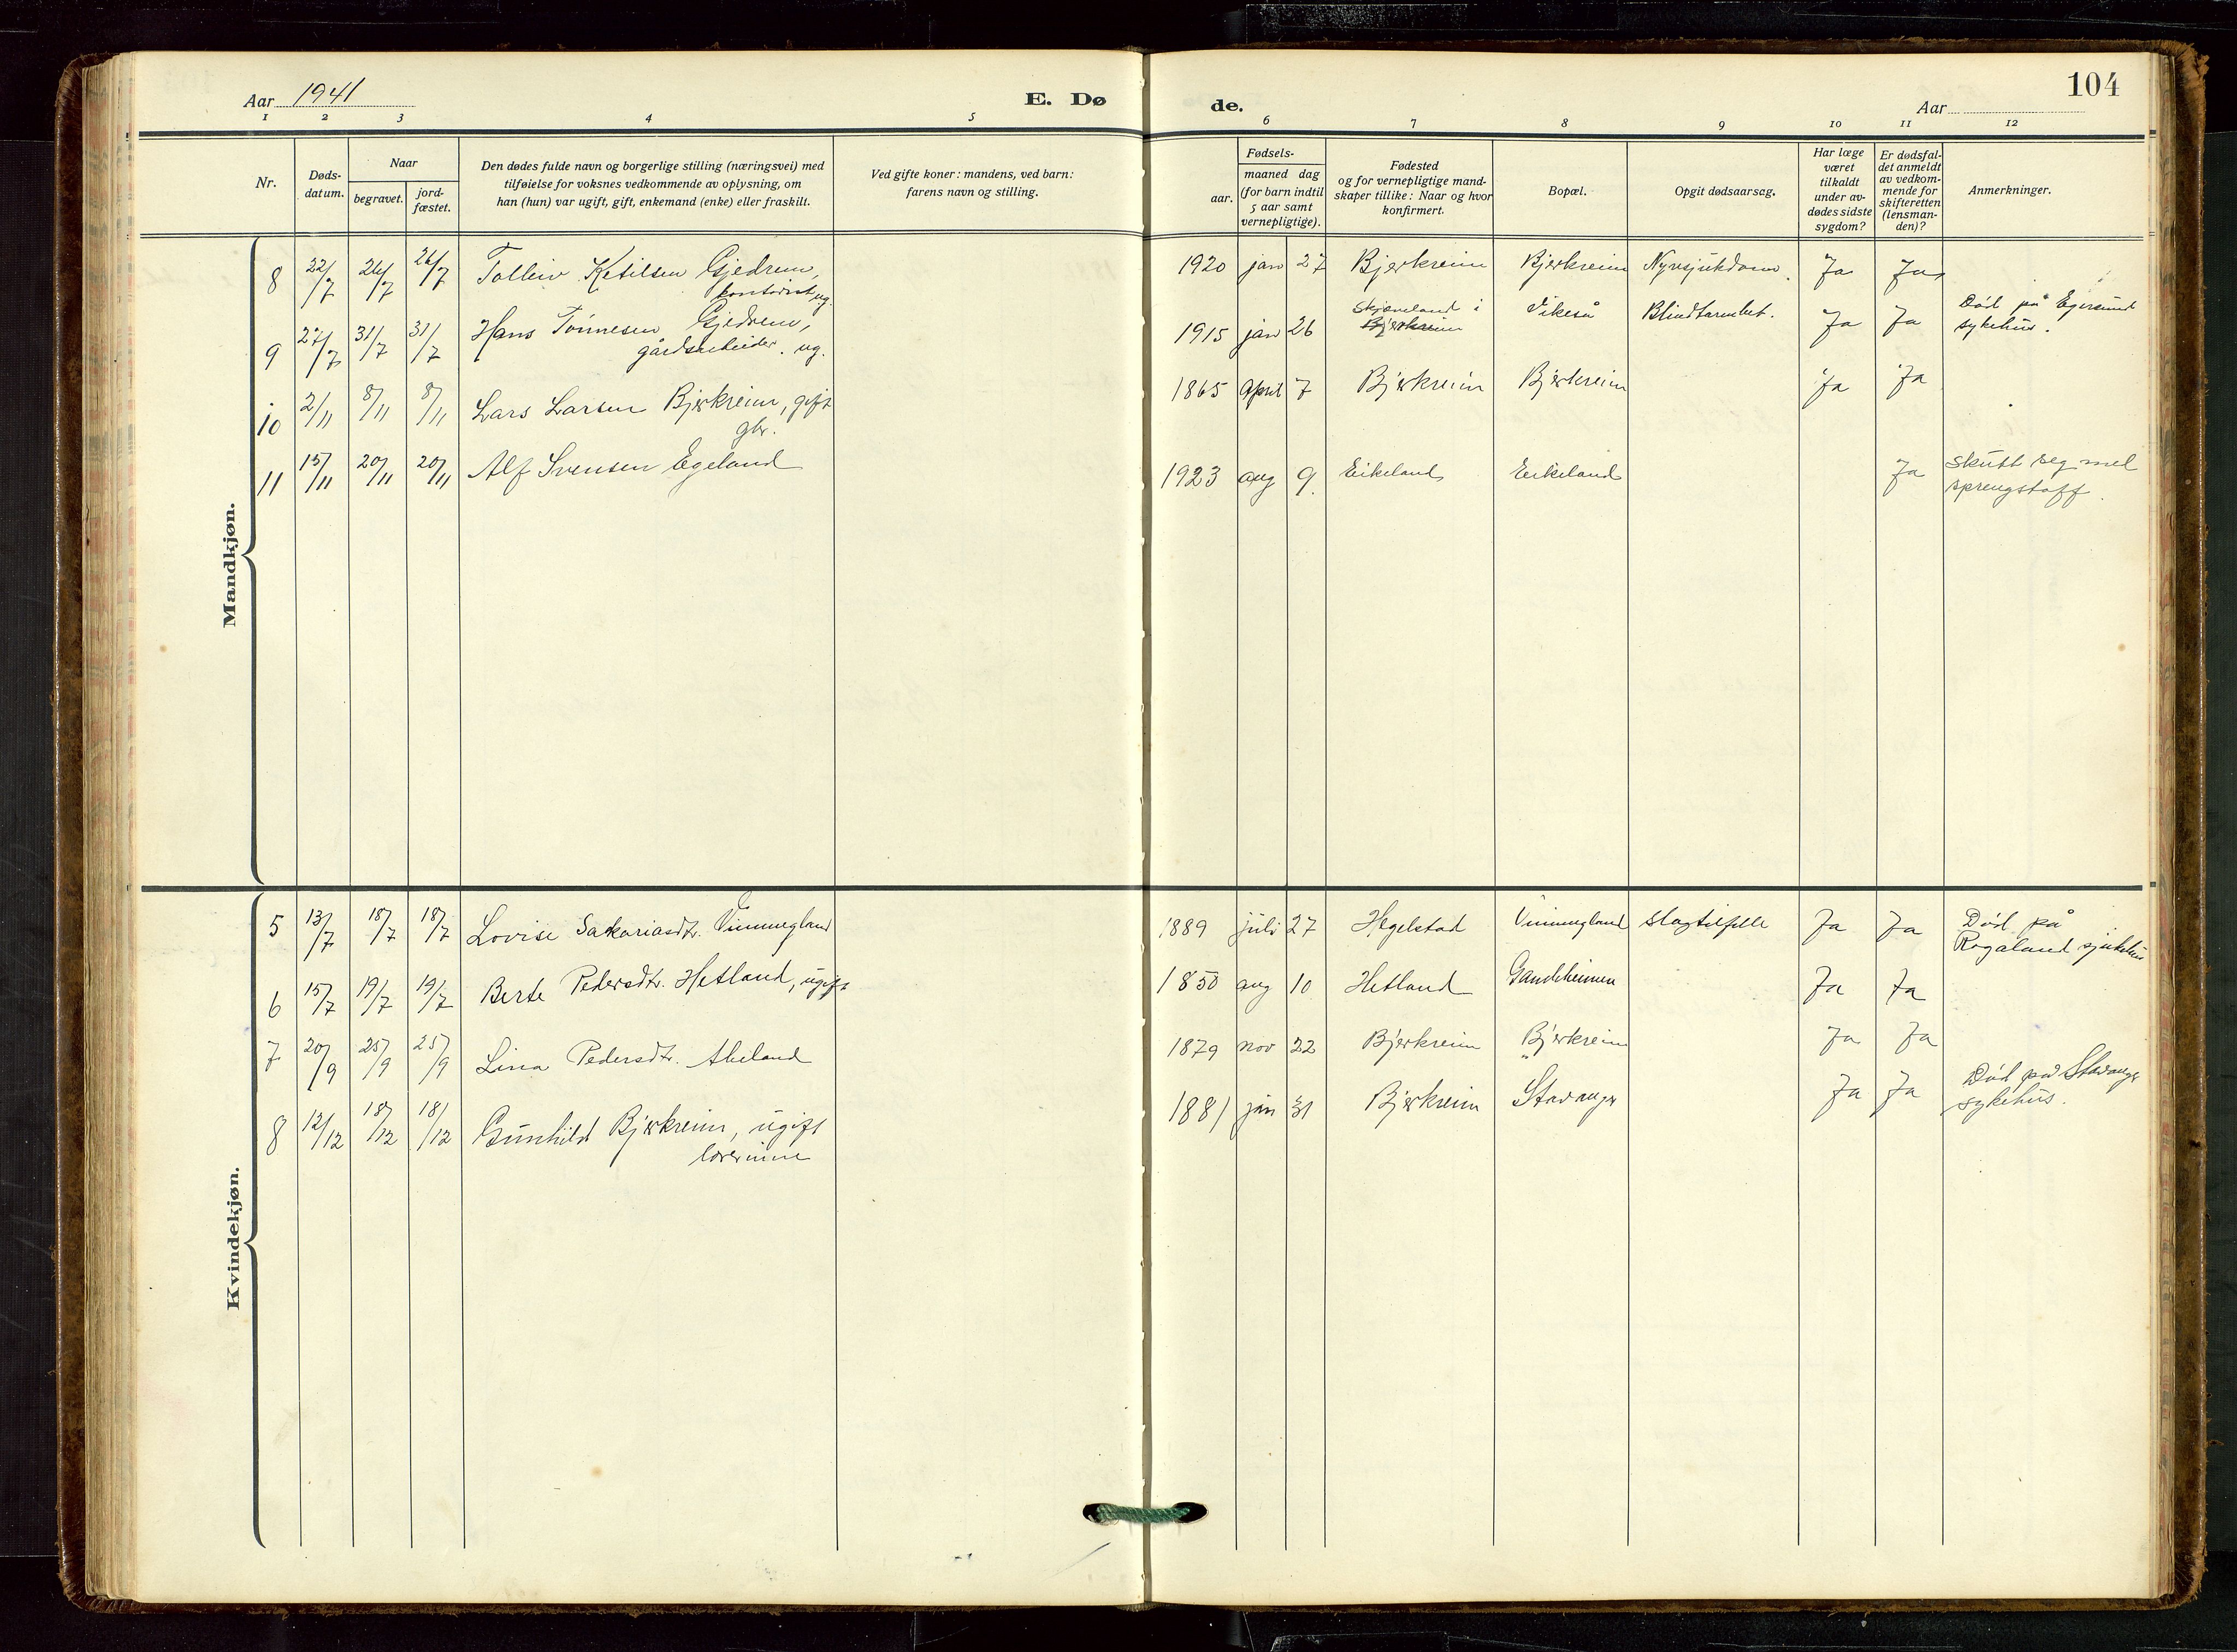 104
Aar 1941
E. Dø
de.
Aar
1 2 3 4 5 6 7 8 9 10 11 12
Nr.
Døds-
datum.
Naar
begravet.
jord-
fæstet.
Den dødes fulde navn og borgerlige stilling (næringsvei) med
tilføielse for voksnes vedkommende av oplysning, om
han (hun) var ugift, gift, enkemand (enke) eller fraskilt.
Ved gifte koner: mandens, ved barn:
farens navn og stilling.
Fødsels-
aar.
maaned dag
(for barn indtil
5 aar samt
vernepligtige).
Fødested
og for vernepligtige mand-
skaper tillike: Naar og hvor
konfirmert.
Bopæl.
Opgit dødsaarsag.
Har læge
været
tilkaldt
under av-
dødes sidste
sygdom?
Er dødsfal-
det anmeldt
av vedkom-
mende for
skifteretten
(lensman-
den)?
Anmerkninger.
Mandkjøn.
8 22/7 26/7 26/7 Tolleiv Ketilsen Gjedrem, 1920 jan 27 Bjerkreim Bjerkreim Nyresjukdom. Ja Ja
kontorist, ug.
9 27/7 31/7 31/7 Hans Tønnesen Gjedrem, 1915 jan 26 Skjæveland i Vikeså Blindtarmbet. Ja Ja Død på Egersund
gårdsarbeider. ug. Bjerkreim sykehus.
10 2/11 8/11 8/11 Lars Larsen Bjerkreim, gift 1865 April 7 Bjerkreim Bjerkreim Ja Ja
gbr.
11 15/11 20/11 20/11 Alf Svensen Egeland 1923 aug 9. Eikeland Eikeland Ja Skutt seg med
sprengstoff.
Kvindekjøn.
5 13/7 18/7 18/7 Lovise Sakariasdtr. Vinningland 1889 juli 27 Hegelstad Vinningland Slagtilfelle Ja Ja Død på
Rogaland sjukehus
6 15/7 19/7 19/7 Berte Pedersdtr. Hetland, ugift 1850 aug 10 Hetland Gamleheimen Ja Ja
7 20/9 25/9 25/9 Lina Pedersdtr. Aheland 1879 nov 22 Bjerkreim Bjerkreim Ja Ja
8 12/12 18/12 18/12 Gunhild Bjerkreim, ugift 1881 jan 31 Bjerkreim Stavanger Ja Ja Død på Stavanger
lærerinne sykehus.